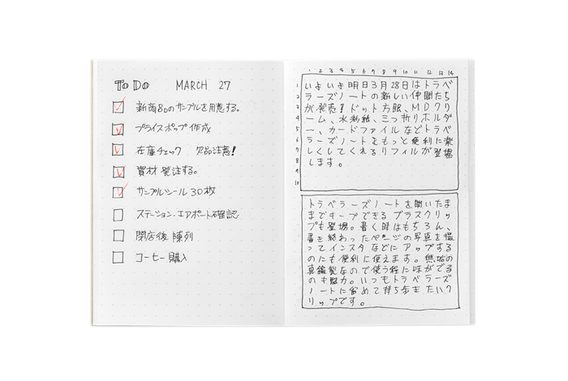 To Do MARCH 27
新商品のサンプルを用意する。
プライスポップ作成
在庫チェック 欠品注意!
資材発注する。
サンプルシール 30枚
ステーション.エアポート確認
閉店後 陳列
コーヒー購入
1 2 3 4 5 6 7 8 9 10 11 12 13 14
1
2
3
4
5
6
7
8
9
10
いよいよ明日3月28日はトラベ
ラーズノートの新しい仲間たち
が発売!ドット方眼、MDクリ
ーム、水彩紙、三つ折りホルダ
ー、カードファイルなどトラベ
ラーズノートをもっと便利に楽
しくしてくれるリフィルが登場
します。
トラベラーズノートを開いたま
まキープできるブラスクリッ
プも登場。書く時はもちろん、
書き終わったページの写真を撮
ってインスタなどにアップする
のにも便利に使えます。無垢の
真鍮製なので使う程に味がでる
のも魅力。いつもトラベラーズ
ノートに留めて持ち歩きたいク
リップです。